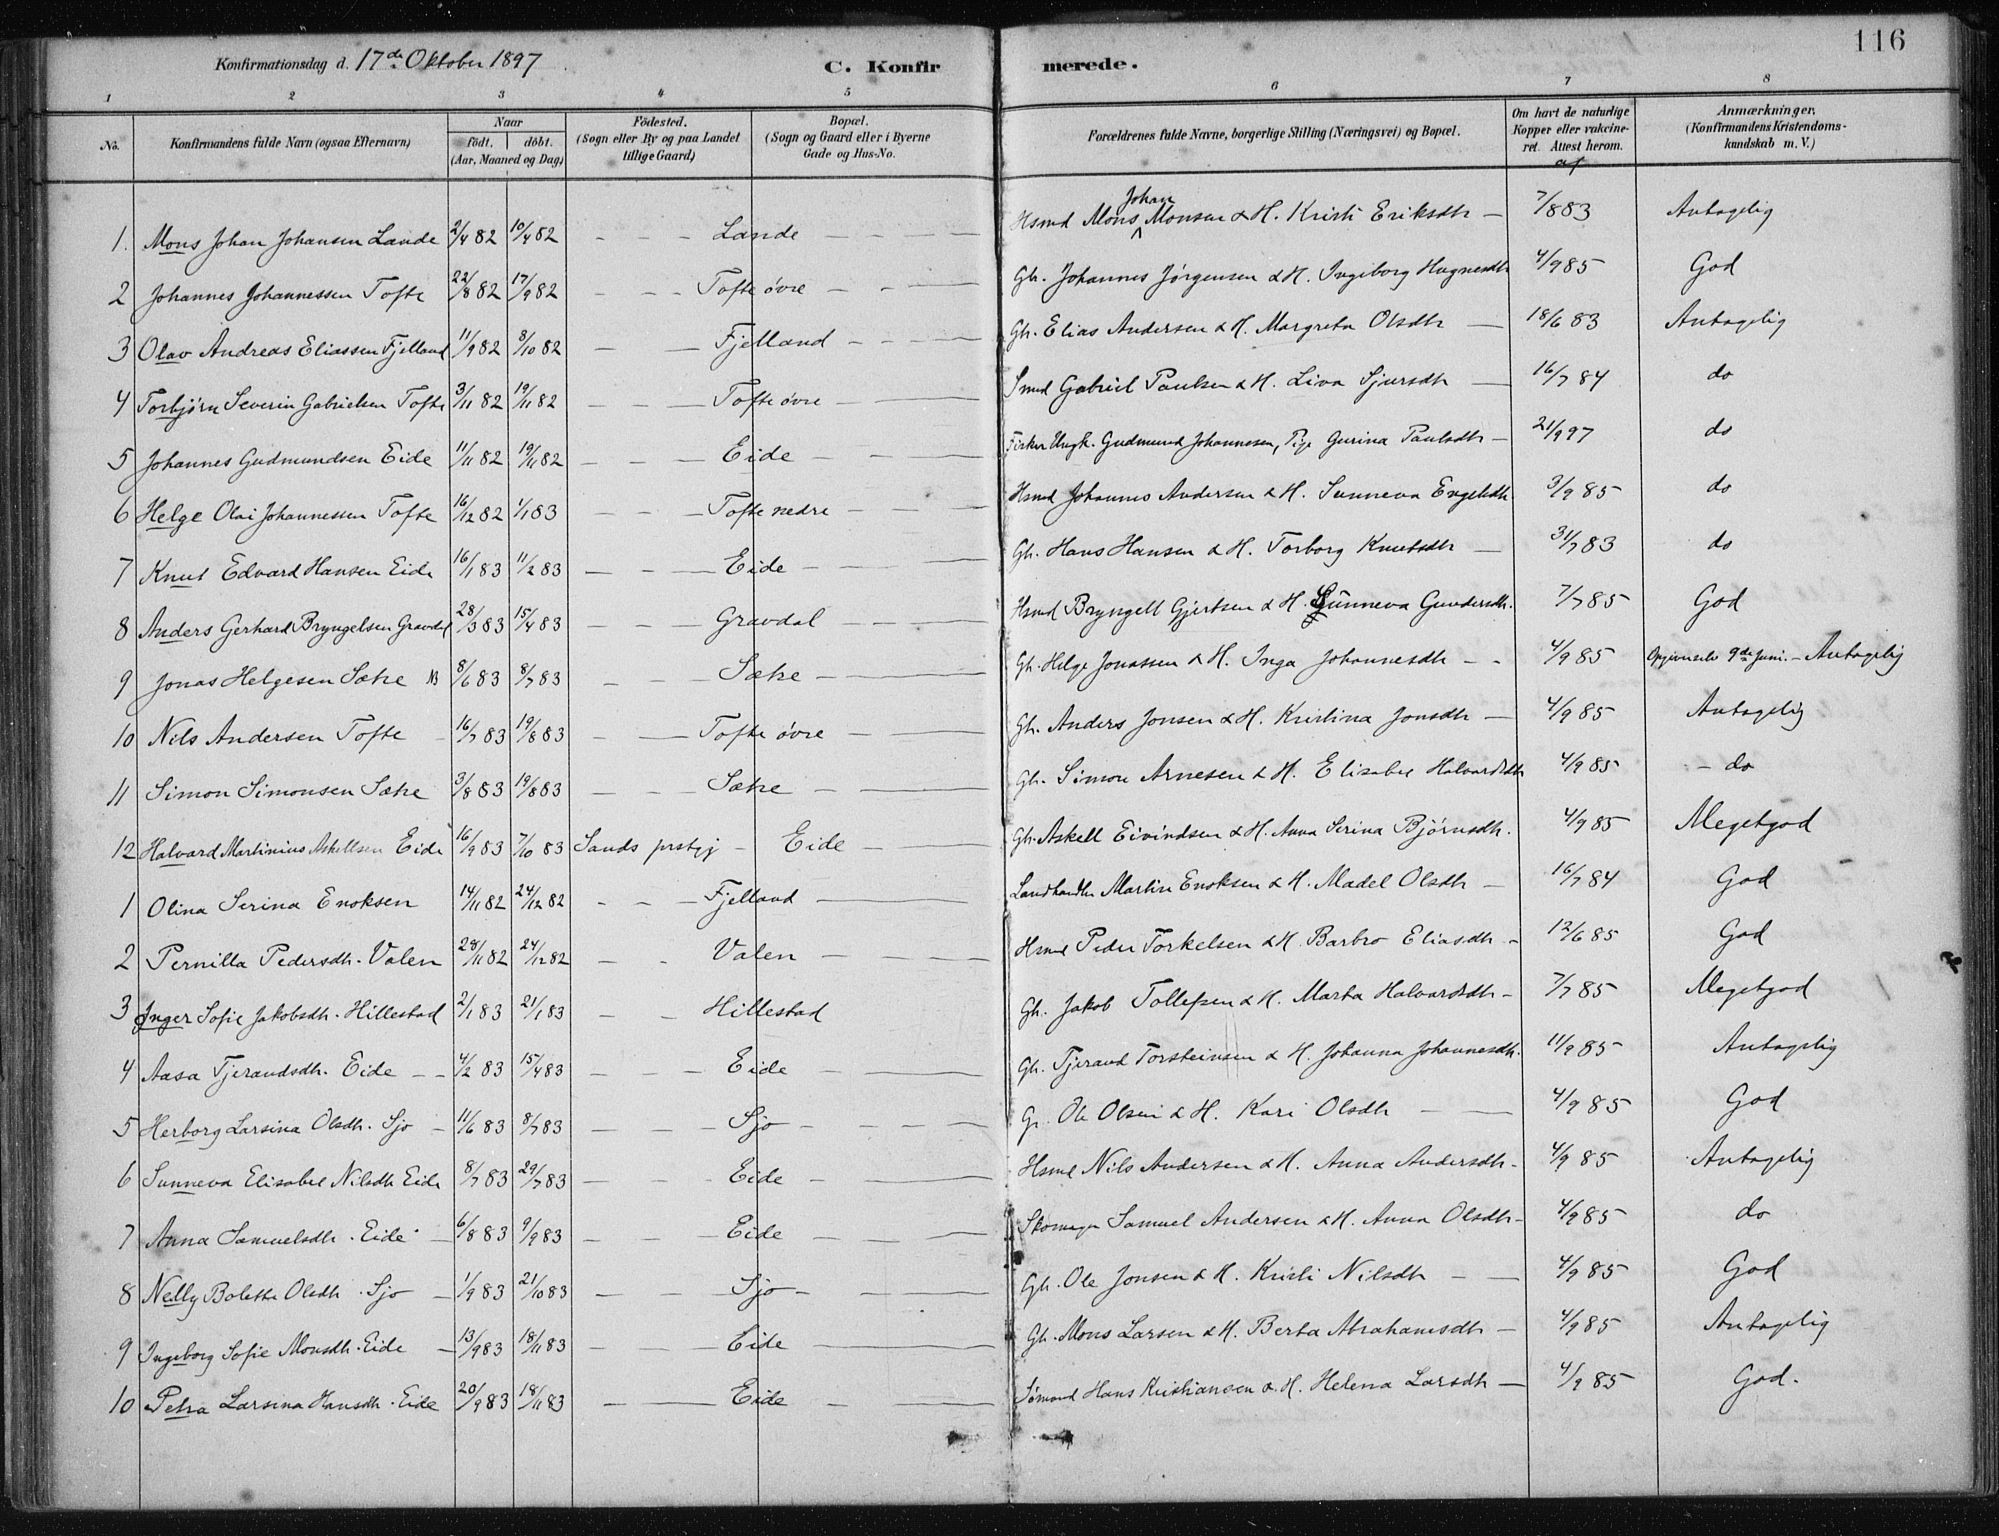 116
Konfirmationsdag d. 17de Oktober 1897 C. Konfirmerede.
1 2 3 4 5 6 7 8
No. Konfirmandens fulde Navn (ogsaa Efternavn) Naar født. døbt. (Aar, Maaned og Dag) Fødested. (Sogn eller By og paa Landet tillige Gaard) Bopæl. (Sogn og Gaard eller i Byerne Gade og Hus-No. Forældrenes fulde Navne, borgerlige Stilling (Næringsvei) og Bopæl. Om havt de naturlige Kopper eller vakcineret. Attest herom. af Anmærkninger. (Konfirmandens Kristendomskundskab m. V.)
1. Mons Johan Johansen Lande 2/4 82 10/4 82 - - - Lande - - - Hsmd Mons Johan Monsen & H. Kristi Eriksdtr - 7/8 83 Antagelig
2 Johannes Johannessen Tofte 22/8 82 17/9 82 - - - Tofte øvre - - - Gbr. Johannes Jørgensen & H. Ingeborg Hagnesdtr 4/9 85 God
3 Olav Andreas Eliassen Fjelland 11/9 82 8/10 82 - - Fjelland - - - Gbr. Elias Andersen & H. Margreta Olsdtr - 18/6 83 Antagelig
4 Torbjørn Severin Gabrielsen Tofte 3/11 82 19/11 82 - - - Tofte øvre - - Smed Gabriel Paulsen & H. Liva Sjursdtr - 16/7 84 do
5 Johannes Gudmundsen Eide 11/11 82 19/11 82 - - - Eide - - - Fisker Ungk. Gudmund Johannesen, Pige Gurina Paulsdtr - 21/9 97 do
6 Helge Olai Johannessen Tofte 16/12 82 1/1 83 - - - Tofte nedre - - Hsmd Johannes Andersen & H. Sunneva Engelsdtr. 3/9 85 do
7 Knut Edvard Hansen Eide 16/1 83 11/2 83 - - - Eide - - - Gbr. Hans Hansen & H. Torborg Knutsdtr - 31/7 83 do
8 Anders Gerhard Bryngelsen Gravdal 28/3 83 15/4 83 - - - Gravdal - - - Hsmd Bryngell Gjertsen & H. Sunneva Gundersdtr. 7/7 85 God
9 Jonas Helgesen Sætre NB 8/6 83 8/7 83 - - - Sætre - - - Gbr. Helge Jonassen & H. Inga Johannesdtr - - 4/9 85 9de Juni. - Antagelig
10 Nils Andersen Tofte - 16/7 83 19/8 83 - - Tofte øvre - - - Gbr. Anders Jonsen & H. Kristina Jonsdtr - 4/9 85 Antagelig
11 Simon Simonsen Sætre 3/8 83 19/8 83 - - - Sætre - - - Gbr. Simon Arnesen & H. Elisabet Halvardsdtr 4/9 85 - do
12 Halvard Martinius Askellsen Eide 16/9 83 7/10 83 Sands prstgj - Eide - - Gbr. Askell Eivindsen & H. Anna Serina Bjørnsdtr. 4/9 85 Megetgod
1 Olina Serina Enoksen 14/11 82 24/12 82 - - - Fjelland - - Landhandler Martin Enoksen & H. Madel Olsdtr - 16/7 84 God
2 Pernilla Pedersdtr. Valen 28/11 82 24/12 82 - - Valen - - - Hsmd Peder Torkelsen & H. Barbro Eliasdtr - 12/6 85 God
3 Inger Sofie Jakobsdtr. Hillestad 2/1 83 21/1 83 - - Hillestad Gbr. Jakob Tollefsen & H. Marta Halvardsdtr - 7/7 85 Megetgod
4 Aasa Tjerandsdtr. Eide - - 4/2 83 15/4 83 - - - Eide - - Gbr. Tjerand Torsteinsen & H. Johanna Johannesdtr. 11/9 85 Antagelig
5 Herborg Larsina Olsdtr. Sjo - 11/6 83 8/7 83 - - - Sjo - - - - Ole Olsen & H. Kari Olsdtr - - 4/9 85 God
6 Sunneva Elisabet Nilsdtr Eide 8/7 83 29/7 83 - - - Eide - - Hsmd Nils Andersen & H. Anna Andersdtr - 4/9 85 Antagelig
7 Anna Samuelsdtr. Eide - 6/8 83 9/9 83 - - - Eide - - - Skomager Samuel Andersen & H. Anna Olsdtr - 4/9 85 do
8 Nelly Bolette Olsdtr. Sjo - 1/9 83 21/10 83 - - - Sjo - - - Gbr. Ole Jonsen & H. Kristi Nilsdtr - - 4/9 85 God
9 Ingeborg Sofie Monsdtr. Eide - 13/9 83 18/11 83 - - - Eide - - Gbr. Mons Larsen & H. Berta Abrahamsdtr - 4/9 85 Antagelig
10 Petra Larsina Hansdtr. Eide 20/9 83 18/11 83 - - Eide - - Sømand Hans Kristiansen & H. Helena Larsdtr - 4/9 85 God.